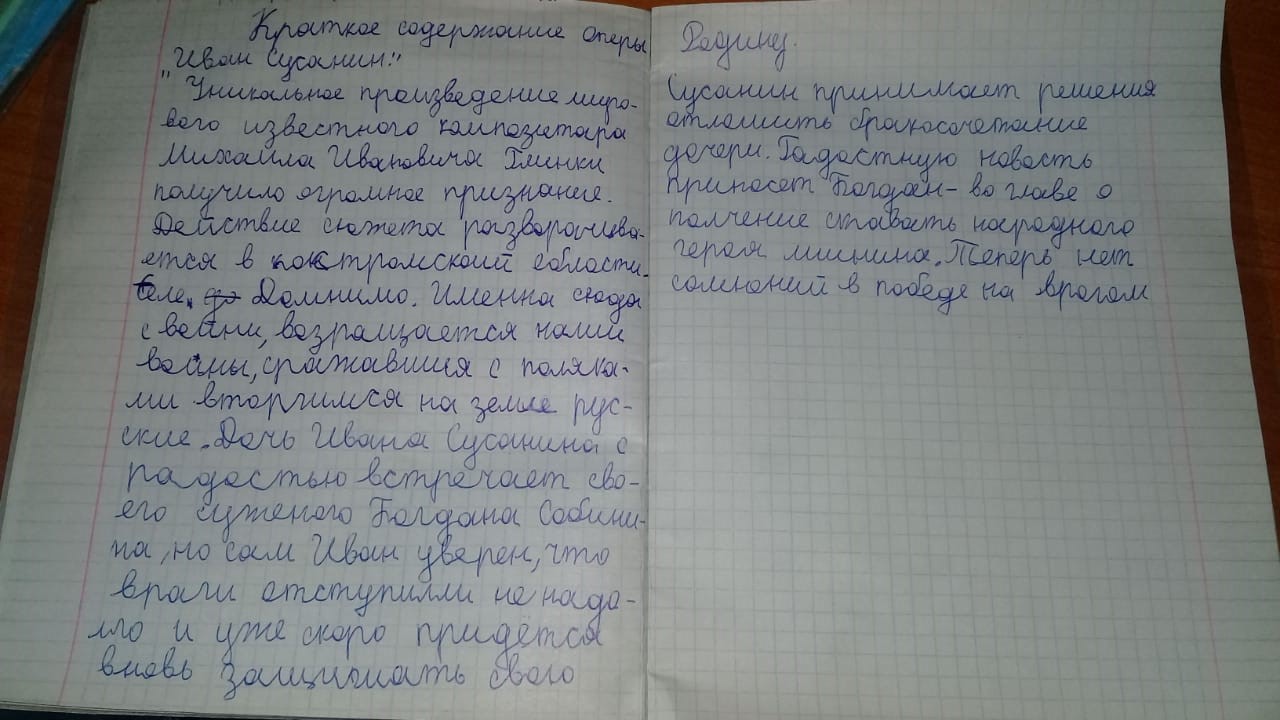 Краткое содержание оперы
"Иван Сусанин."
Уникальное произведение миро-
вого известного композитара
Михаила Ивановича Глинки
получило огромное признание.
Действие сюжета разворочива-
ется в костромской области.
Селе, Домнимо. Именна сюда
с войни, возращается наши
войны, сражавшися с поляка-
ми вторгимися на земле рус-
ские. Дочь Ивана Сусанина с
радостью встречает сво-
его суженого Богдана Собини-
на, но сам Иван уверен, что
враги отступилли не надо-
лго и уже скоро придётся
вновь защищать свою
Родину.
Сусанин принимает решения
отложить бракосочетание
дочери. Радостную новость
приносет Богдан - во главе о
полчение ставать народного
героя минина. Теперь нет
сомнений в победе на врагом